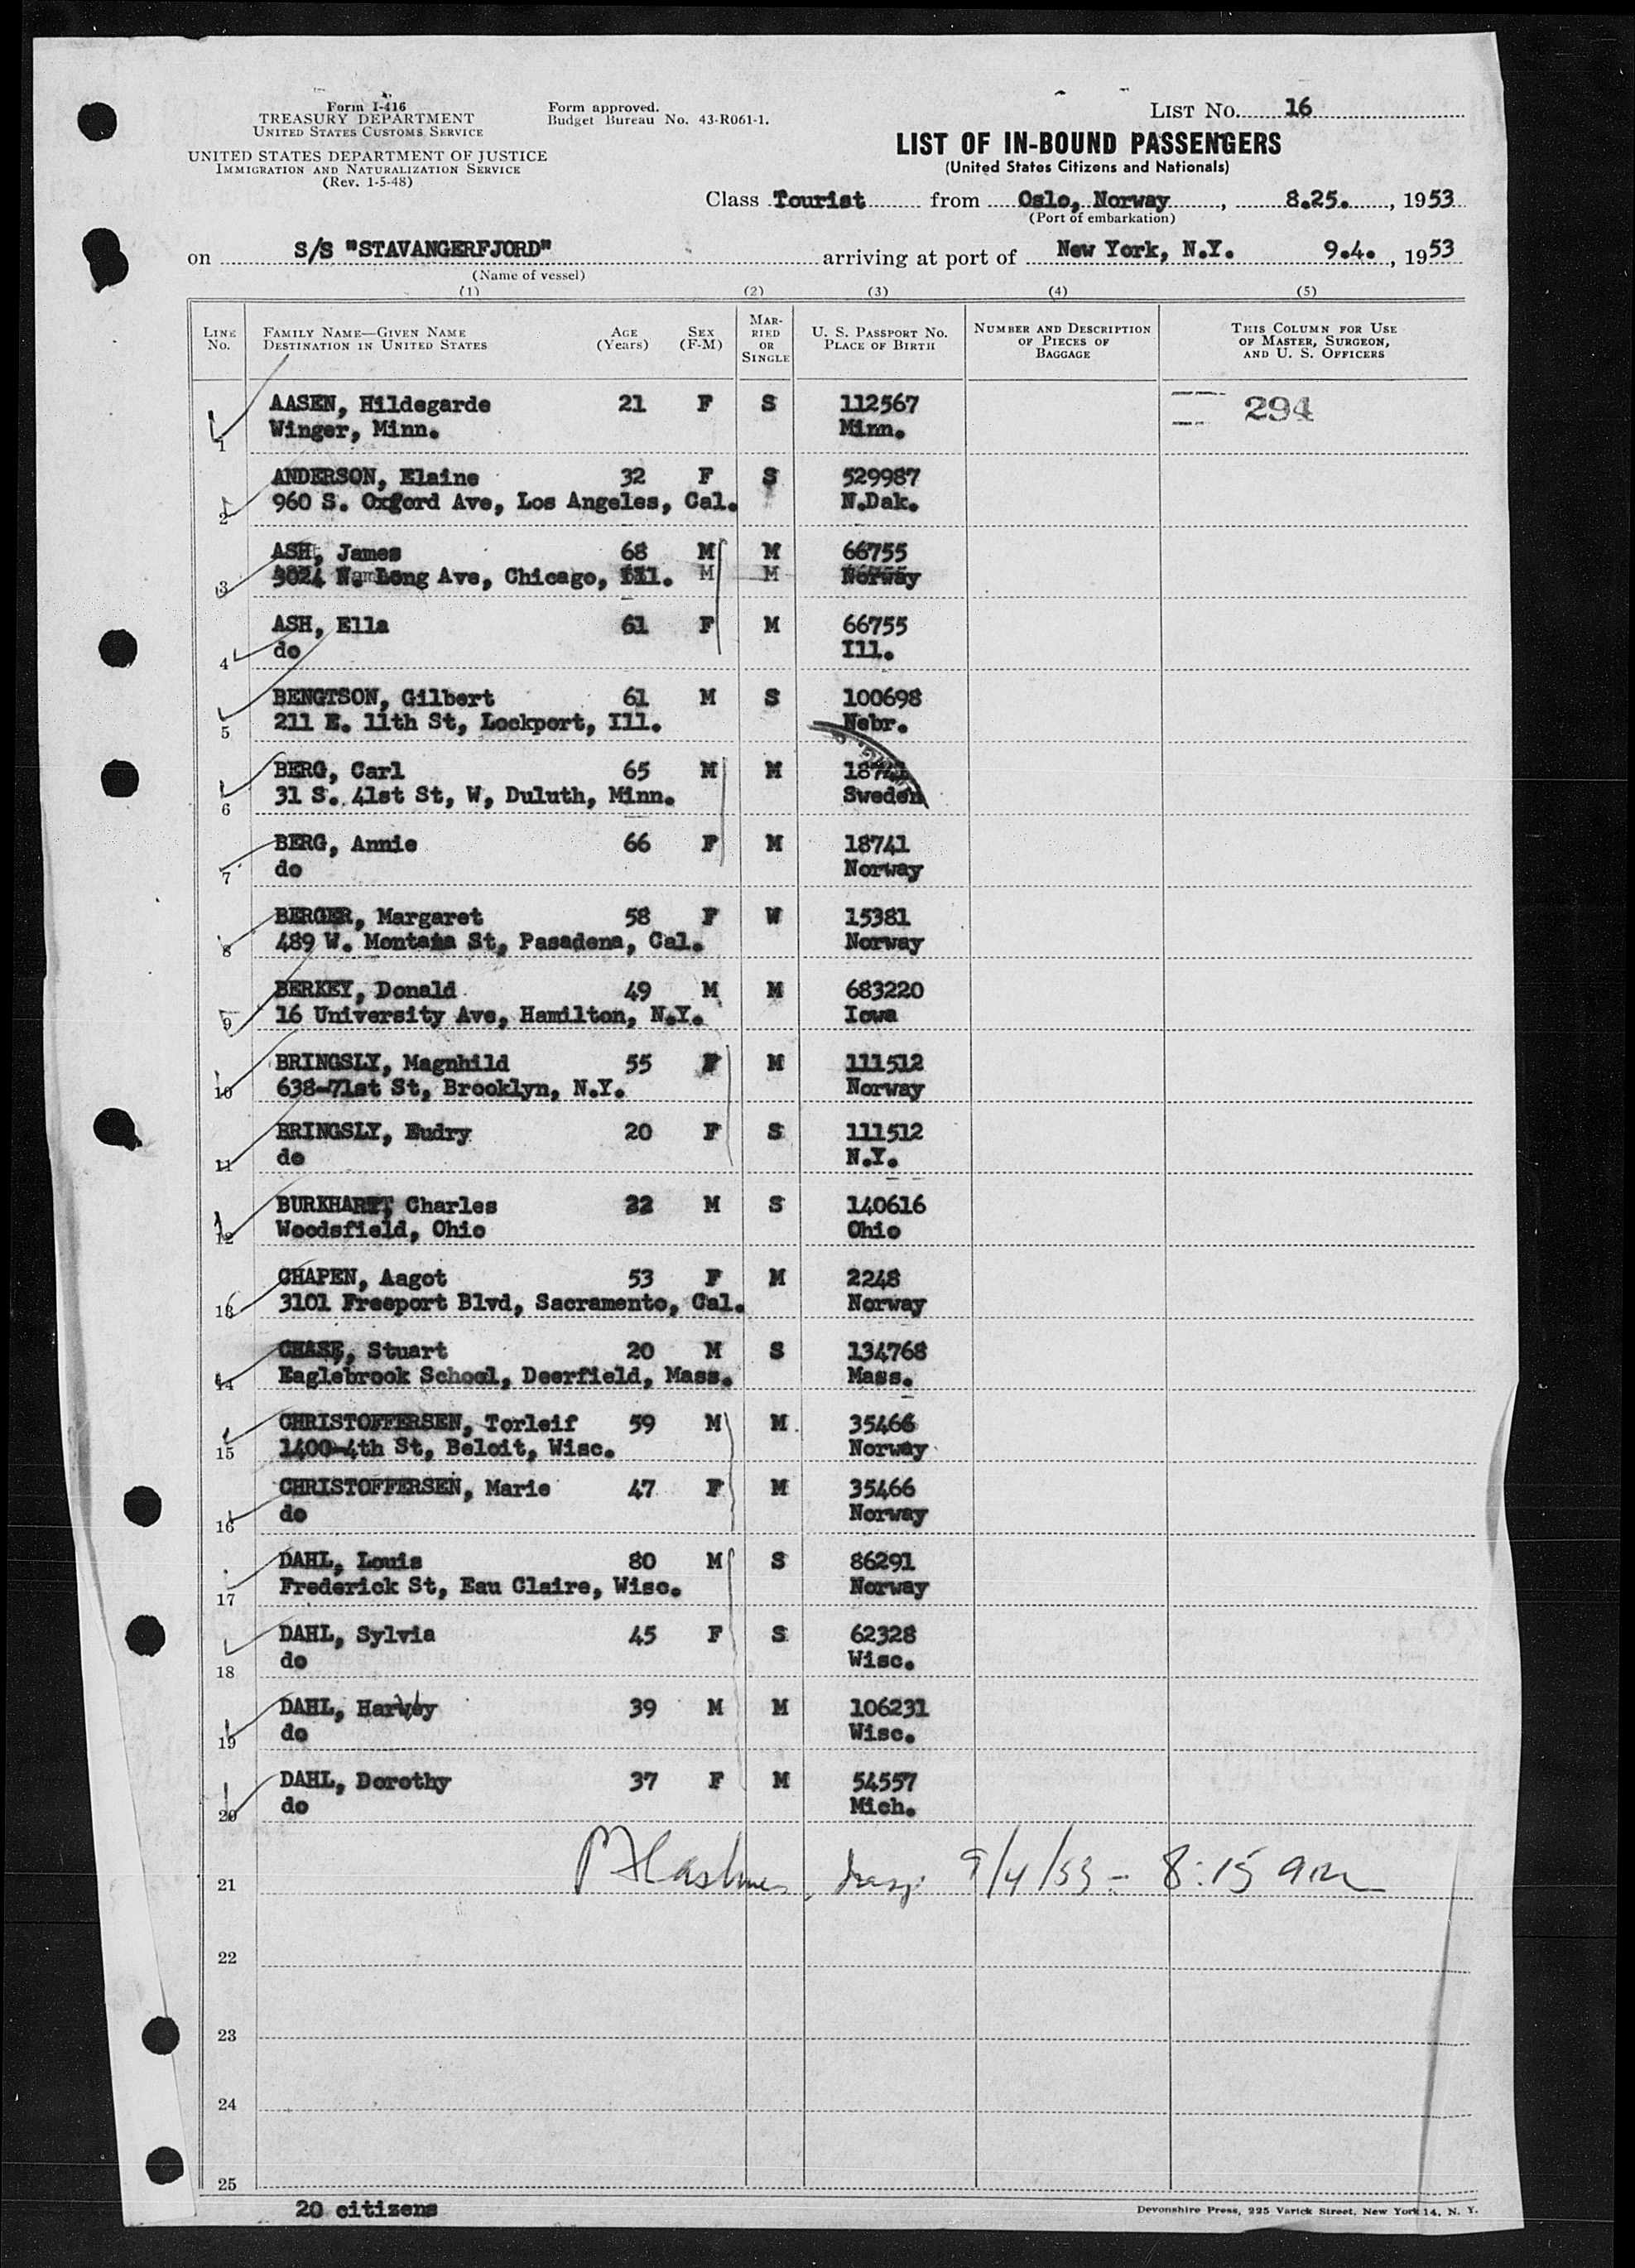 Form I-416
TREASURY DEPARTMENT
UNITED STATES CUSTOMS SERVICE
UNITED STATES DEPARTMENT OF JUSTICE
IMMIGRATION AND NATURALIZATION SERVICE
(Rev. 1-5-48)
Form approved.
Budget Bureau No. 43-R061-1.
LIST No. 16
LIST OF IN-BOUND PASSENGERS
(United States Citizens and Nationals)
Class Tourist from Oslo, Norway, 8.25., 1953
(Port of embarkation)
on S/S "STAVANGERFJORD" arriving at port of New York, N.Y. 9.4., 1953
(Name of vessel)
(1) (2) (3) (4) (5)
LINE No. FAMILY NAME—GIVEN NAME DESTINATION IN UNITED STATES AGE (Years) SEX (F-M) MARRIED OR SINGLE U. S. PASSPORT NO. PLACE OF BIRTH NUMBER AND DESCRIPTION OF PIECES OF BAGGAGE THIS COLUMN FOR USE OF MASTER, SURGEON, AND U. S. OFFICERS
AASEN, Hildegarde 21 F S 112567 294
1 Winger, Minn. Minn.
ANDERSON, Elaine 32 F S 529987
2 960 S. Oxford Ave, Los Angeles, Cal. N.Dak.
ASH, James 68 M M 66755
3 3024 N. Long Ave, Chicago, Ill. M M Norway
ASH, Ella 61 F M 66755
4 do Ill.
BENGTSON, Gilbert 61 M S 100698
5 211 E. 11th St, Lockport, Ill. Nebr.
BERG, Carl 65 M M 18741
6 31 S. 41st St, W, Duluth, Minn. Sweden
BERG, Annie 66 F M 18741
7 do Norway
BERGER, Margaret 58 F W 15381
8 489 W. Montana St, Pasadena, Cal. Norway
BERKEY, Donald 49 M M 683220
9 16 University Ave, Hamilton, N.Y. Iowa
BRINGSLY, Magnhild 55 F M 111512
10 638-71st St, Brooklyn, N.Y. Norway
BRINGSLY, Eudry 20 F S 111512
11 do N.Y.
BURKHART, Charles 22 M S 140616
12 Woodsfield, Ohio Ohio
CHAPEN, Aagot 53 F M 2248
13 3101 Freeport Blvd, Sacramento, Cal. Norway
CHASE, Stuart 20 M S 134768
14 Eaglebrook School, Deerfield, Mass. Mass.
CHRISTOFFERSEN, Torleif 59 M M 35466
15 1400-4th St, Beloit, Wisc. Norway
CHRISTOFFERSEN, Marie 47 F M 35466
16 do Norway
DAHL, Louis 80 M S 86291
17 Frederick St, Eau Claire, Wisc. Norway
DAHL, Sylvia 45 F S 62328
18 do Wisc.
DAHL, Harvey 39 M M 106231
19 do Wisc.
DAHL, Dorothy 37 F M 54557
20 do Mich.
21 9/4/53 - 8:15 am
22
23
24
25
20 citizens
Devonshire Press, 225 Varick Street, New York 14, N. Y.